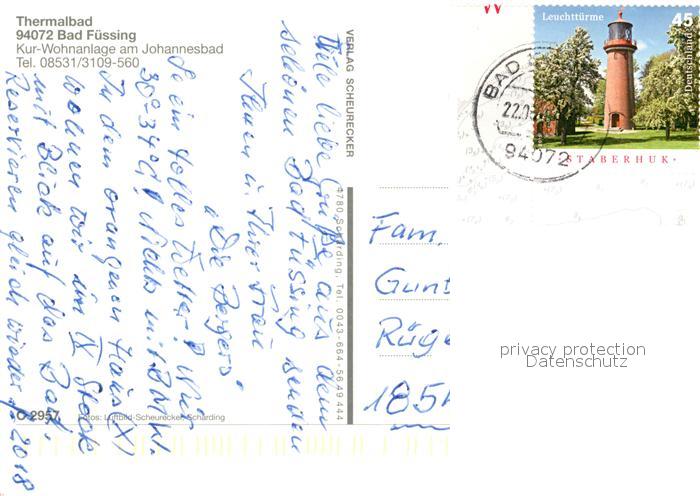 Thermalbad
94072 Bad Füssing
Kur-Wohnanlage am Johannesbad
Tel. 08531/3109-560
Viele liebe Grüße aus dem
schönen Bad Füssing senden
Ihnen u. Ihrer Frau
"Die Bergers"
So ein tolles Wetter! Wir
30°-34°C! Nichts mit
In dem orangenen Haus (X)
wohnen wir im IV Stock
mit Blick auf das Bad.
Reservieren gleich wieder f. 2018
C 2957
Fotos: Luftbild-Scheurecker, Schärding
VERLAG SCHEURECKER
4780 Schärding, Tel. 0043-664-5649444
Leuchttürme
45
Deutschland
STABERHUK
BAD
22.0
94072
Fam.
Gunt
Rüge
185
privacy protection
Datenschutz